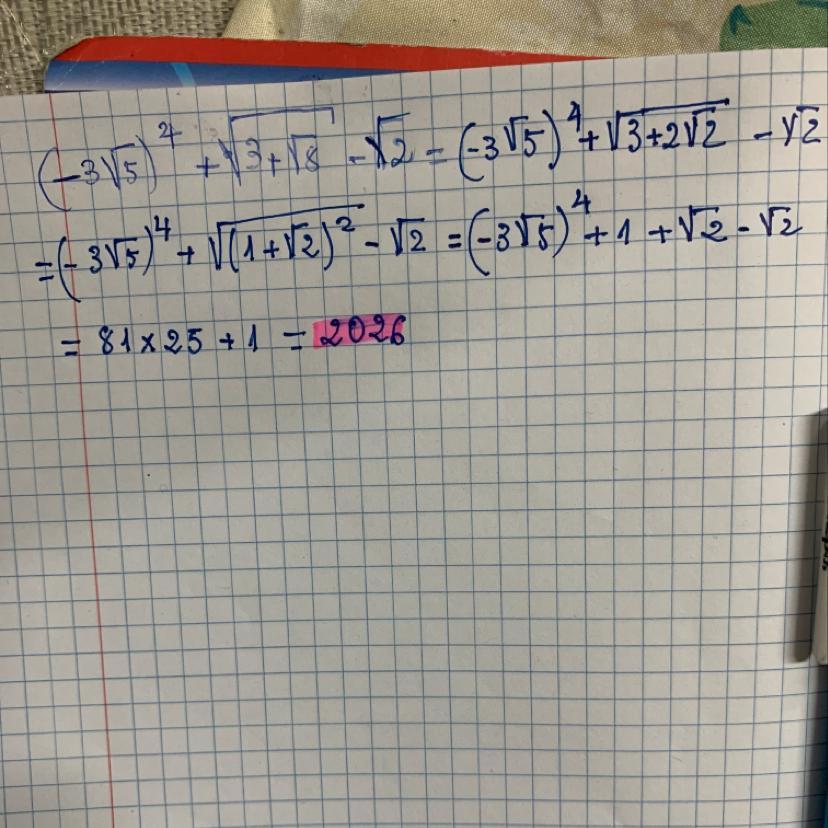 (-3√5)⁴ + √(3+√8) - √2 = (-3√5)⁴ + √(3+2√2) - √2
= (-3√5)⁴ + √((1+√2)²) - √2 = (-3√5)⁴ + 1 + √2 - √2
= 81 × 25 + 1 = 2026